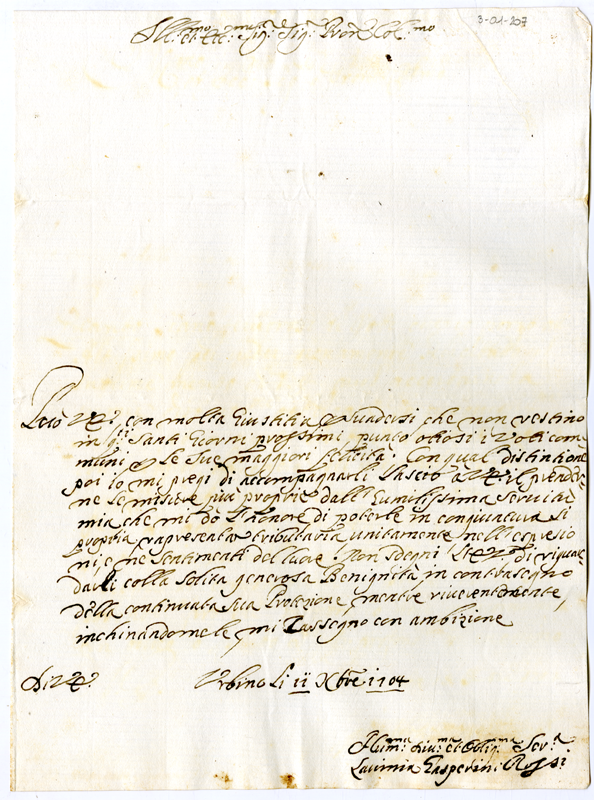 3-01-207
Ill.mo et Ecc.mo Sig.r Sig.r Pron Col.mo
Può V.E. con molta Giustitia persuadersi che non restino
in q.ti Santi Giorni prossimi punto otiosi i Voti com
muni p le Sue maggiori felicità. Con qual distintione
poi io mi pregi di accompagnarli lascio a V.E. il prender
ne le misure più proprie dall Humilissima servitù
mia che mi dò l'honore di poterle in congiuntura sì
propria rapresentar tributaria unitamente nell espresio
ni, e ne sentimenti del Cuore. Non sdegni l'E.V. di riguar
darli colla solita generosa Benignità in contrasegno
della continuata sua Protezione, mentre riverentemente
inchinandomele, mi rassegno con ambizione
Di V.E.
Urbino li 11 Xbre 1704
Hum.ma Div.ma et Oblig.ma Ser.a
Lavinia Gasperini Rossi